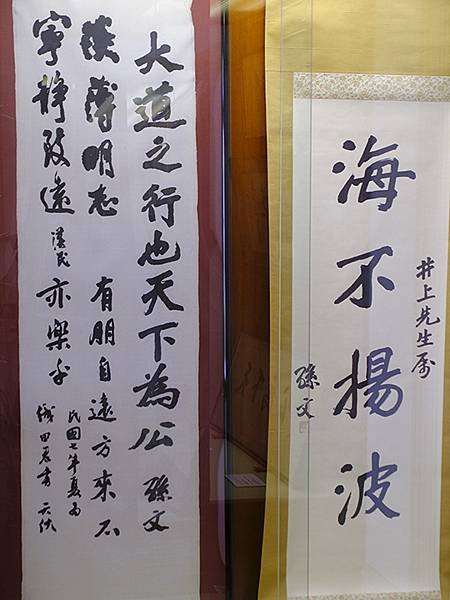 井上先生属
海不揚波
孫文
大道之行也天下為公 孫文
淡薄明志 有朋自遠方來不
寧靜致遠 漢民 亦樂乎
民國七年夏為
田君書 天仇